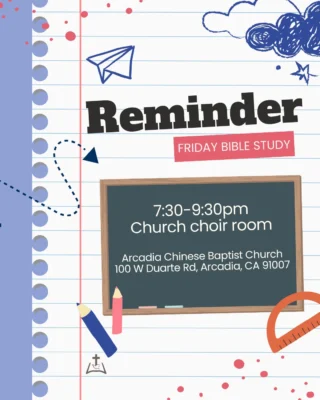 Reminder
FRIDAY BIBLE STUDY
7:30-9:30pm
Church choir room
Arcadia Chinese Baptist Church
100 W Duarte Rd, Arcadia, CA 91007